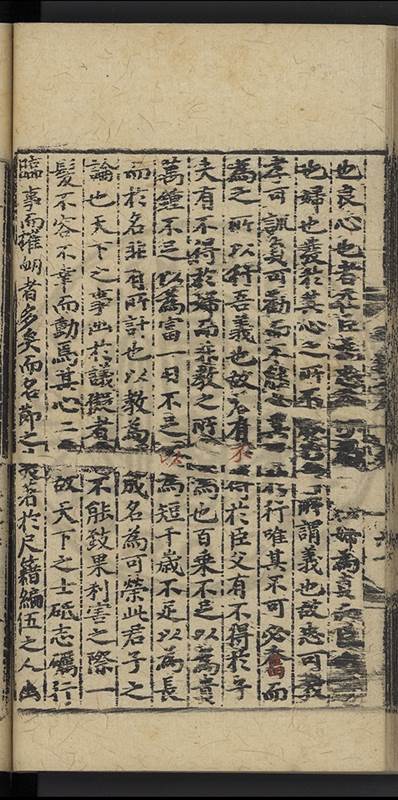 也良心也者 臣 忠 婦為貞
也婦也義於其心之所不 所謂義也故忠可教
孝可訓貞可勸而不能 其 行唯其不可必奮而
為之所以行吾義也故君有不得於臣父有不得於子
夫有不得於婦而非教之所 為也百乘不足以為貴
萬鍾不足以為富一日不足以為短千歲不足以為長
而於名非有所計也以教為 成名為可榮此君子之
論也天下之事出於議擬者 不能致果利害之際一
髮不容不幸而動焉其心二 故天下之士砥志礪行
臨事而 者多矣而名節之 著於尺籍編伍之人出